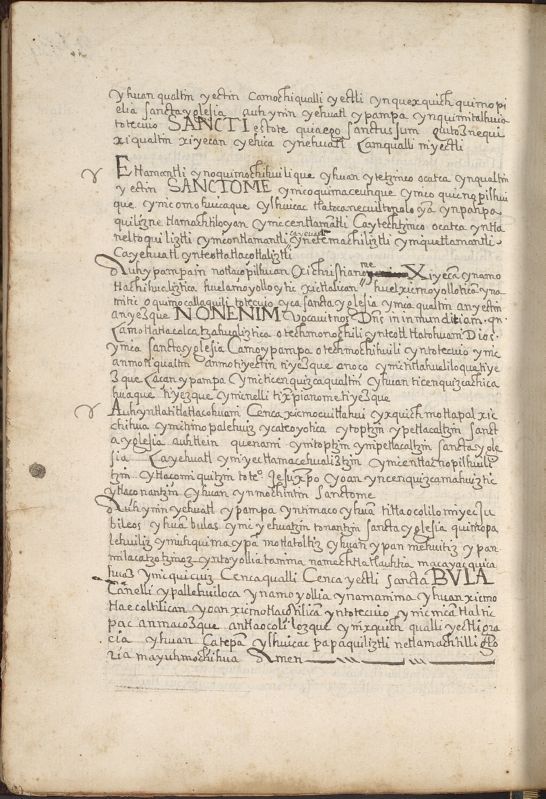 yhuan qualtin yectin Camochiqualli yectli ynquexquich quimopi
elia sancta yglesia auh ynin yehuatl ypampa ynquimitalhuia
totecuio SANCTI estote quia ego sanctus sum quitoznequi
xiqualtin xiyecan yehica ynehuatl Camqualli miyectli
Ettamantli ynoquimochihuili que yhuan ytetzinco ocatca ynqualtin
y ectin SANCTOME ynic oquimaceunque ynic
que ynic omohuicaque ylhuicac tlatocanecuiltonoloyan ynpanpa
quilizne tlamachtiloyan ynic centlamantli Caytechtzinco ocatca yntla
neltoquiliztli ynic ontlamantli ynnetemachiliztli yniquettamantli
Cayehuatl ynteotlatlacotlaliztli
Auh ypampain notlaçopilhuan Xichristianome Xiyecan ynamo
tlachihualiztica huelamoyollocytic xictlalican huel xicmoyollotican yna
mitic oquimocallaquili totecuio yca sancta yglesia ynica qualtin anyectin
anyezque NON ENIM vocauit nos Dns in inmunditiam. qn.
Camo tlatlacalcatzahualiztica otechmonochili ynteotl tlatohuani Dios.
ynica sancta yglesia Camo ypampa otechmochihuili yntotecuio ynic
anmotiqualtin anmotiyectin tiyezque anoço ynictitlahueliloque tiye
zque Caçan ypampa ynic ticenquizcaqualtin yhuan ticenquizcachica
huaque tiyezque ynicnelli tixpianome tiyezque
Auh yntlatitlatlacohuani Cenca xicmocuitlahui yxquich motlapal xic
chihua ynic timopalehuiz ycateoyotica yntoptzin ypetlacaltzin sanct
a yglesia auh tlein quenami ynitoptzin ynipetlacaltzin sancta ygle
sia Cayehuatl yniyectlamacehualiztzin ynicentlaçnopilhuili
tzin ytlaçomiquitzin toteo Jesuxpo yoan yncenquizcamahuiztic
ytlaço nantzin yhuan ynmochintin sanctome
Auh ynin yehuatl ypampa yntimaco yhuan titlaocolilo miyec Ju
bileos yhuan bulas ynic yehuatzin tonantzin sancta yglesia quimopa
lehuiliz yniuhquima ypan motlatoltiz yhuan ypan mehuitiz ypan
milacatzotzinoz yntoyollia tanima namechtlatlauhtia macayac quica
huaz ynic quicuiz Cenca qualli Cenca yectli sancta BVLA
Canelli ypallehuiloca ynamoyollia ynamanima yhuan xicmo
tlaecoltilican yoan xicmotlaçotilican yntotecuio ynic nican tlaltic
pac anmacozque antlaocolilozque ynixquich qualli yectli gra
cia yhuan Catepan ylhuicac papaquiliztli netlamachtilli glo
ria mayuhmochihua Amen